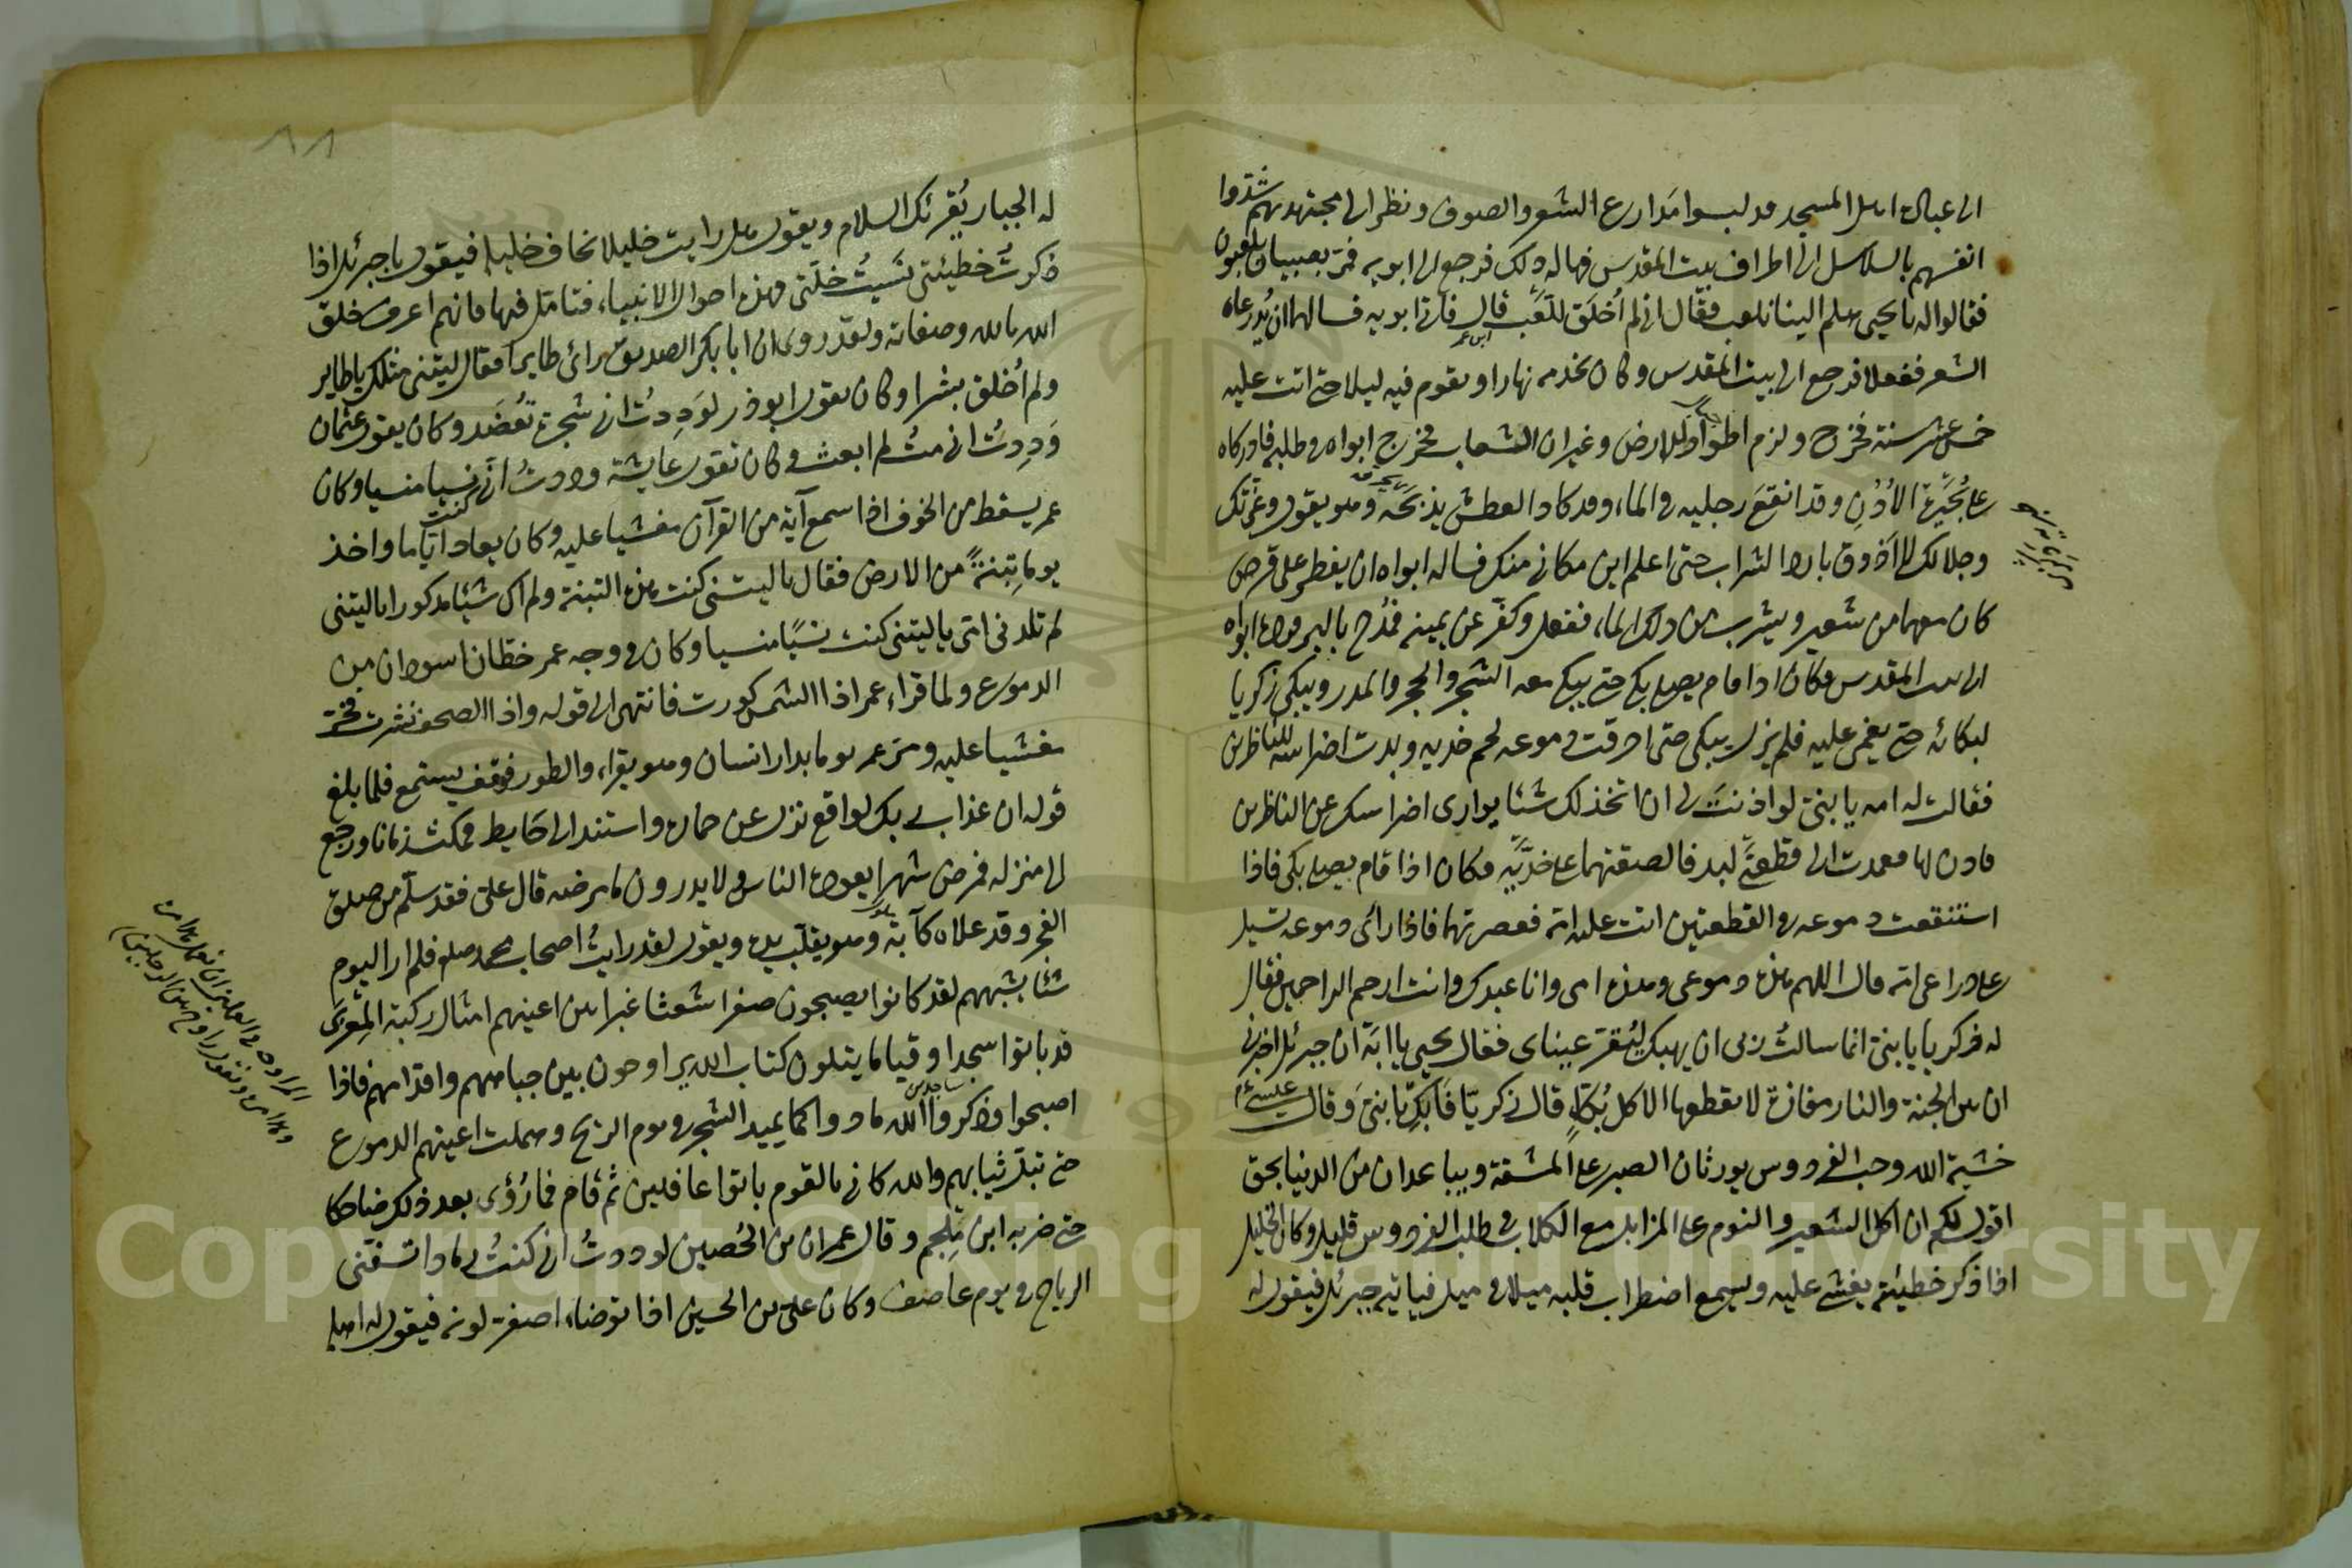 الى عباد اهل المسجد قد لبسوا مدارع الشعر والصوف ونظر الى مجتهديهم شدوا
انفسهم بالسلاسل الى اطراف بيت المقدس فهاله ذلك فرجع الى ابويه فمر بصبيان يلعبون
فقالوا له يا يحيى هلم الينا نلعب فقال اني لم أخلق للعب قال فاتى ابويه فسالهما ان يُدرعاه
الشعر ففعلا فرجع الى بيت المقدس وكان يخدمه نهارا ويقوم فيه ليلا حتى اتت عليه
خمس عشر سنة فخرج ولزم اطواد الارض وغيران الشعاب فخرج ابواه في طلبه فادركاه
على بُحَيرة الاُردُن وقد انقع رجليه في الماء وقد كاد العطش يذبحه وهو يقول وعزتك
وجلالك لا اذوق بارد الشراب حتى اعلم اين مكاني منك فساله ابواه ان يفطر على قرص
كان معهما من شعير ويشرب من ذلك الماء ففعل وكفر عن يمينه فمُدح بالبر فرده ابواه
الى بيت المقدس فكان اذا قام يصلي بكى حتى يبكي معه الشجر والحجر والمدر ويبكي زكريا
لبكائه حتى يغمى عليه فلم يزل يبكي حتى احرقت دموعه لحم خديه وبدت اضراسه للناظرين
فقالت له امه يا بني لو اذنت لي ان اتخذ لك شئا يواري اضراسك عن الناظرين
فاذن لها فعمدت الى قطعتي لبد فالصقتهما على خديه فكان اذا قام يصلي بكى فاذا
استنقعت دموعه في القطعتين اتت عليه امه فعصرتهما فاذا رأى دموعه تسيل
على ذراعي امه قال اللهم هذه دموعي وهذه امي وانا عبدك وانت ارحم الراحمين فقال
له زكريا يا بني انما سالتُ ربي ان يهبك لي لتقر عيناي فقال يحيى يا ابة ان جبرئيل اخبرني
ان بين الجنة والنار مفازة لا يقطعها الا كل بُكّاء قال زكريا فابك يا بني وقال عيسى
خشية الله وحب الفردوس يورثان الصبر على المشقة ويباعدان من الدنيا بحق
اقول لكم ان اكل الشعير والنوم على المزابل مع الكلاب في طلب الفردوس قليل وكان الخليل
اذا ذكر خطيئته يغشى عليه ويسمع اضطراب قلبه ميلا في ميل فياتيه جبرئيل فيقول له
له الجبار يُقرئك السلام ويقول هل رايت خليلا يخاف خليله فيقول يا جبرئيل اذا
ذكرتُ خطيئتي نسيتُ خلتي فهذه احوال الانبياء فتامل فيها فانهم اعرف خلق
الله بالله وصفاته ولقد روى ان ابا بكر الصديق رأى طايرا فقال ليتني مثلك يا طاير
ولم أخلق بشرا وكان يقول ابو ذر لوددتُ اني شجرة تُعضد وكان يقول عثمان
وددتُ اني متُ لم ابعث وكان تقول عايشة وددتُ اني كنت نسيا منسيا وكان
عمر يسقط من الخوف اذا سمع آية من القرآن مغشيا عليه وكان يعاد اياما واخذ
يوما تبنة من الارض فقال يا ليتني كنت هذه التبنة ولم اك شئا مذكورا يا ليتني
لم تلدني امي يا ليتني كنت نسيا منسيا وكان في وجه عمر خطان اسودان من
الدموع ولما قراء عمر اذا الشمس كورت فانتهى الى قوله واذا الصحف نشرت فخر
مغشيا عليه ومر عمر يوما بدار انسان وهو يقراء والطور فوقف يستمع فلما بلغ
قوله ان عذاب ربك لواقع نزل عن حماره واستند الى حايط فمكث زمانا ورجع
الى منزله فمرض شهرا يعوده الناس ولا يدرون ما مرضه قال علي فقد سلم من صلوة
الفجر وقد علاه كآبة وهو يقلب يده ويقول لقد رايتُ اصحاب محمد صلعم فلم ار اليوم
شئا يشبههم لقد كانوا يصبحون صفرا شعثا غبرا بين اعينهم امثال ركبة المِعزى
قد باتوا سجدا وقياما يتلون كتاب الله يراوحون بين جباههم واقدامهم فاذا
اصبحوا وذكروا الله مادوا كما يميد الشجر في يوم الريح وهملت اعينهم الدموع
حتى تبل ثيابهم والله كاني بالقوم باتوا غافلين ثم قام فما رُؤي بعد ذلك ضاحكا
حتى ضربه ابن ملجم وقال عمران بن الحُصين لوددتُ اني كنتُ رمادا تسفني
الرياح في يوم عاصف وكان علي بن الحسين اذا توضاء اصفر لونه فيقول له اهله